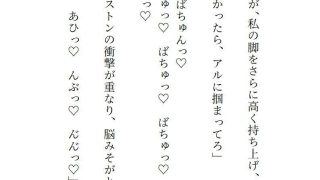 が、私の脚をさらに高く持ち上げ、
かったら、アルに掴まってろ」
ばちゅんっ♡
ゅっ♡　ばちゅっ♡　ばちゅっ♡
っ♡
ストンの衝撃が重なり、脳みそが
あひっ♡　んぶっ♡　ん゛ん゛っ♡」